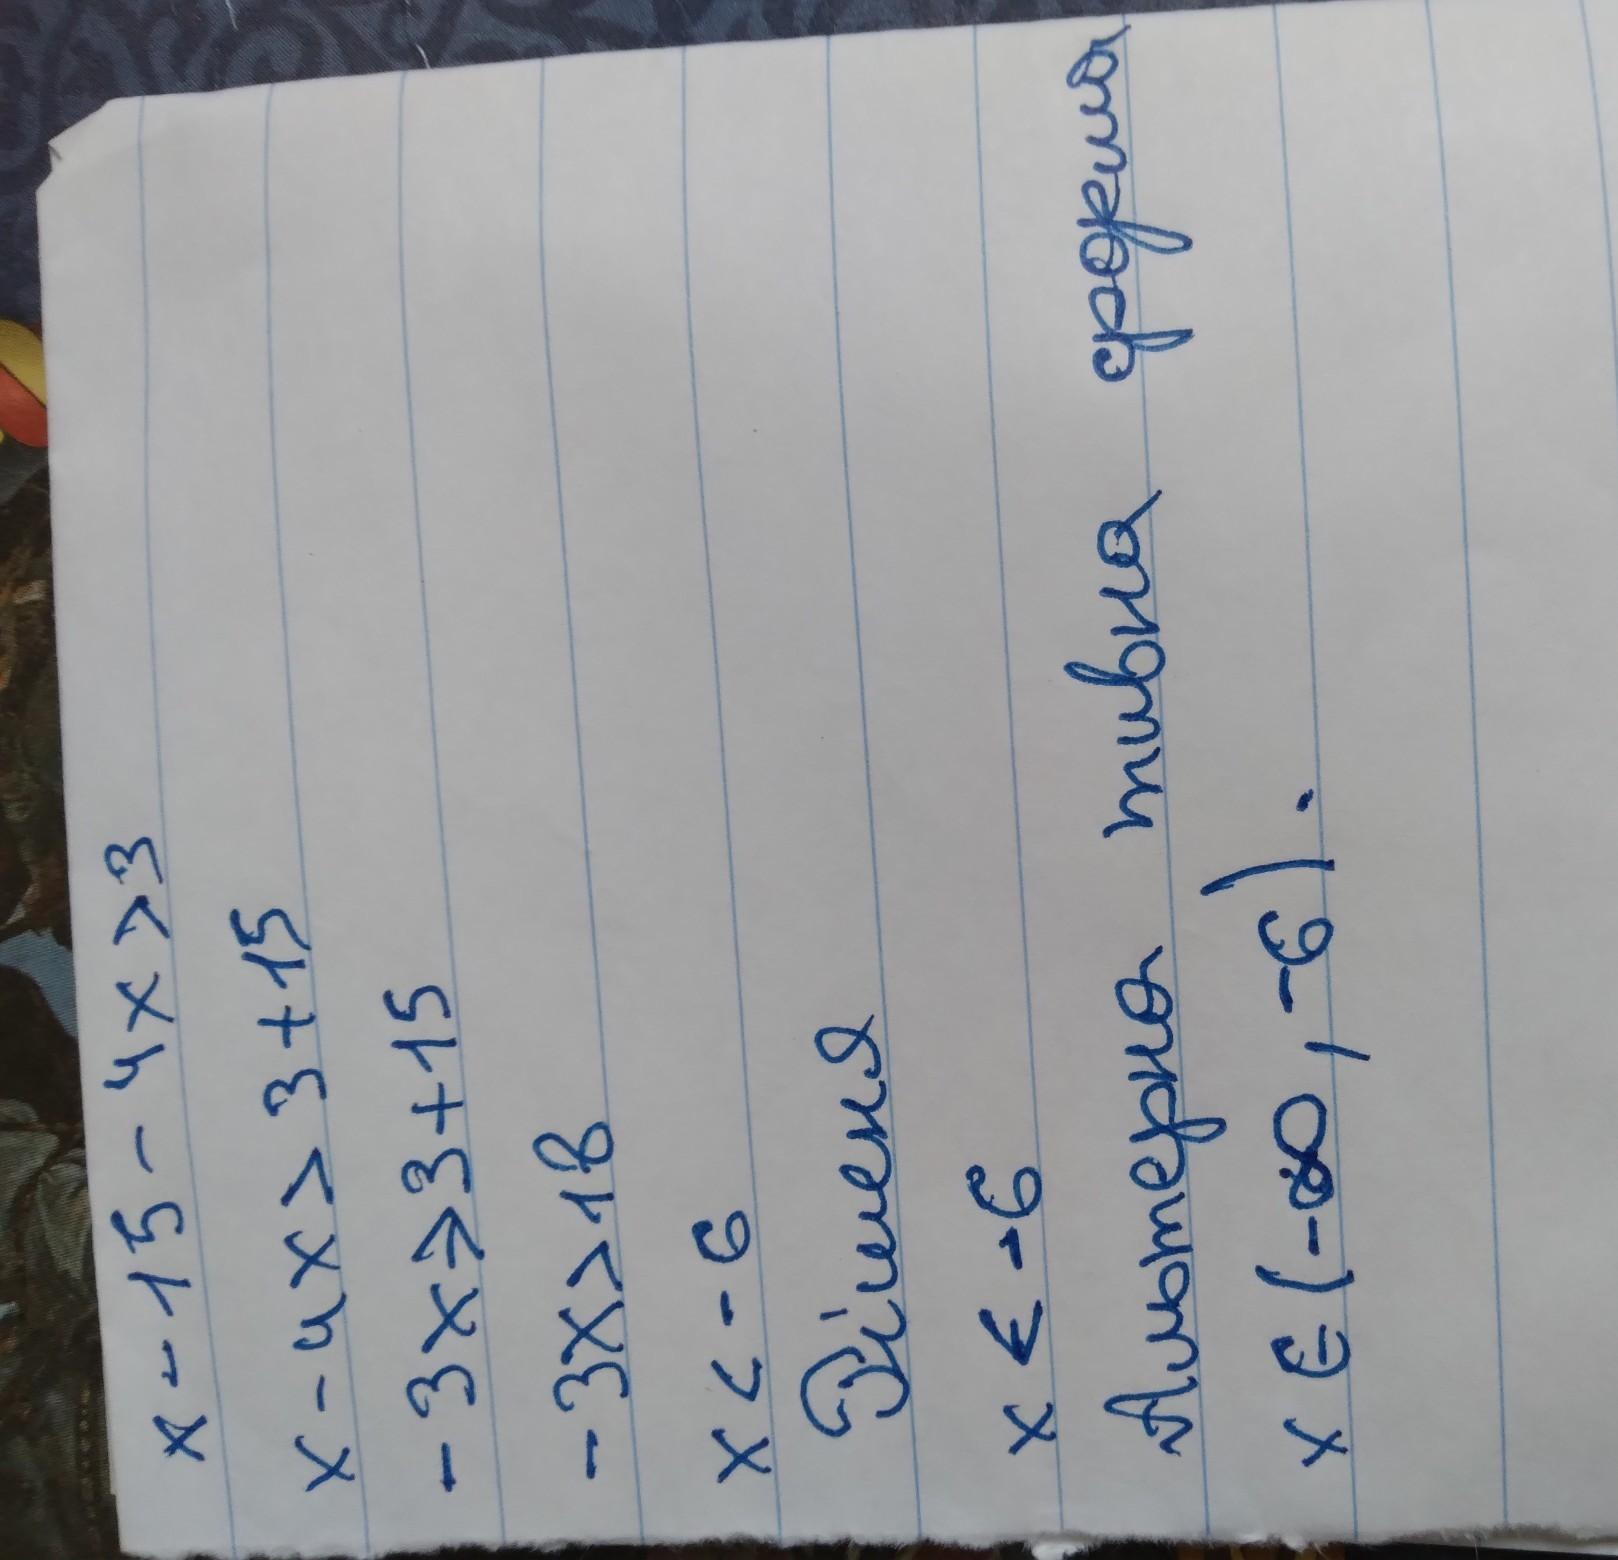 x - 15 - 4x > 3
x - 4x > 3 + 15
- 3x > 3 + 15
- 3x > 18
x < - 6
Рішеня
x < - 6
Альтерна тивна форма
x ∈ (-∞, -6).